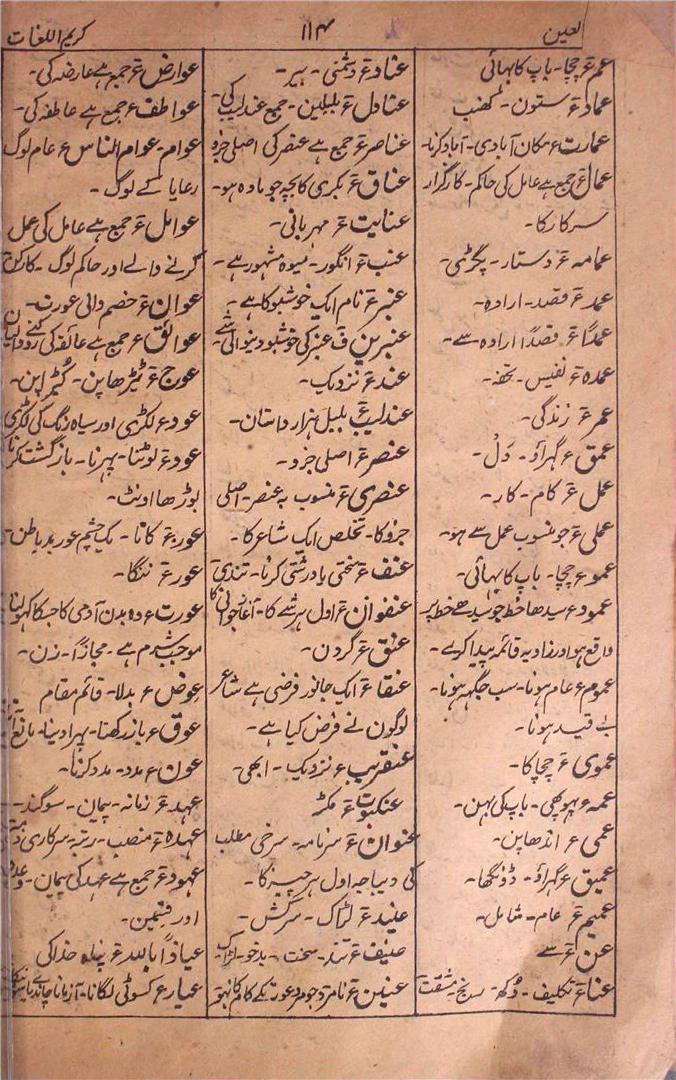 لعین
۱۱۴
کریم اللغات
عم ع چچا۔ باپ کا بھائی
عماد ع ستون۔ کھنب
عمارت ع مکان آبادی۔ آباد کرنا۔
عمال ع جمع ہے عامل کی حاکم۔ کارگزار
سرکار کا۔
عمامہ ع دستار۔ پگڑی۔
عمد ع قصد۔ ارادہ۔
عمداً ع قصداً ارادہ سے۔
عمدہ ع نفیس۔ تحفہ۔
عمر ع زندگی۔
عمق ع گہراؤ۔ دَل۔
عمل ع کام۔ کار۔
عملی ع جو منسوب عمل سے ہو۔
عمو ع چچا۔ باپ کا بہائی۔
عمود ع سیدھا خط جو سیدھے خط پر
واقع ہو اور زاویہ قائمہ پیدا کرے۔
عموم ع عام ہونا۔ سب جگہہ ہونا۔
بے قید ہونا۔
عموی ع چچا کا۔
عمہ ع پہوپھی۔ باپ کی بہن۔
عمی ع اندھا پن۔
عمیق ع گہراؤ۔ ڈونگھا۔
عمیم ع عام۔ شامل۔
عن ع سے
عنا ع تکلیف۔ دُکھ۔ رنج۔ مشقت
عناد ع دشمنی۔ بیر۔
عنادل ع بلبلین۔ جمع عندلیب کی۔
عناصر ع جمع ہے عنصر کی اصلی جزو
عناق ع بکری کا بچہ جو مادہ ہو۔
عنایت ع مہربانی۔
عنب ع انگور۔ میوہ مشہور ہے۔
عنبر ع نام ایک خوشبو کا ہے۔
عنبرین ف عنبر کی خوشبو دینوالی شے
عند ع نزدیک۔
عندلیب ع بلبل ہزار داستان۔
عنصر ع اصلی جزو۔
عنصری ع منسوب بہ عنصر۔ اصلی
جزو کا۔ تخلص ایک شاعر کا۔
عنف ع سختی یا درشتی کرنا۔ تندی
عنفوان ع اول ہر شے کا۔ آغاز جوانی کا
عنق ع گردن۔
عنقا ع ایک جانور فرضی ہے شاعر
لوگون نے فرض کیا ہے۔
عنقریب ع نزدیک۔ ابھی۔
عنکبوت ع مکڑ
عنوان ع سرنامہ۔ سرخی مطلب
کی دیباجہ اول ہر چیز کا۔
عنید ع لڑاک۔ سرکش۔
عنیف ع تند۔ سخت۔ بدخو۔ لڑاک
عنین ع نامرد جو مرد عورت کے کام کا نہو
عوارض ع جمع ہے عارضہ کی۔
عواطف ع جمع ہے عاطفہ کی۔
عوام۔ عوام الناس ع عام لوگ
رعایا کے لوگ۔
عوامل ع جمع ہے عامل کی عمل
کرنے والے اور حاکم لوگ۔ کارکن
عوان ع خصم والی عورت۔
عوائق ع جمع ہے عائقہ کی
عوج ع ٹیڑھا پن۔ کُبڑا پن۔
عود ع لکڑی اور سیاہ رنگ کی لکڑی
عود ع لوٹنا۔ پہرنا۔ بازگشت کرنا
بوڑھا اونٹ۔
عور ع کانا۔ یک چشم عور بد باطن۔
عور ع ننگا۔
عورت ع وہ بدن آدمی کا جسکا کہولنا
موجب شرم ہے۔ مجازاً۔ زن۔
عوض ع بدلا۔ قائم مقام
عوق ع باز رکھنا۔ پہرا دینا۔ مانع
عون ع مدد۔ مدد کرنا۔
عہد ع زمانہ۔ پیمان۔ سوگند۔
عہدہ ع منصب۔ رتبہ سرکاری
عہود ع جمع ہے عہد کی پیمان۔
اور قسمین۔
عیاذاً باللہ ع پناہ خدا کی
عیار ع کسوٹی لگانا۔ آزمانا چاندی